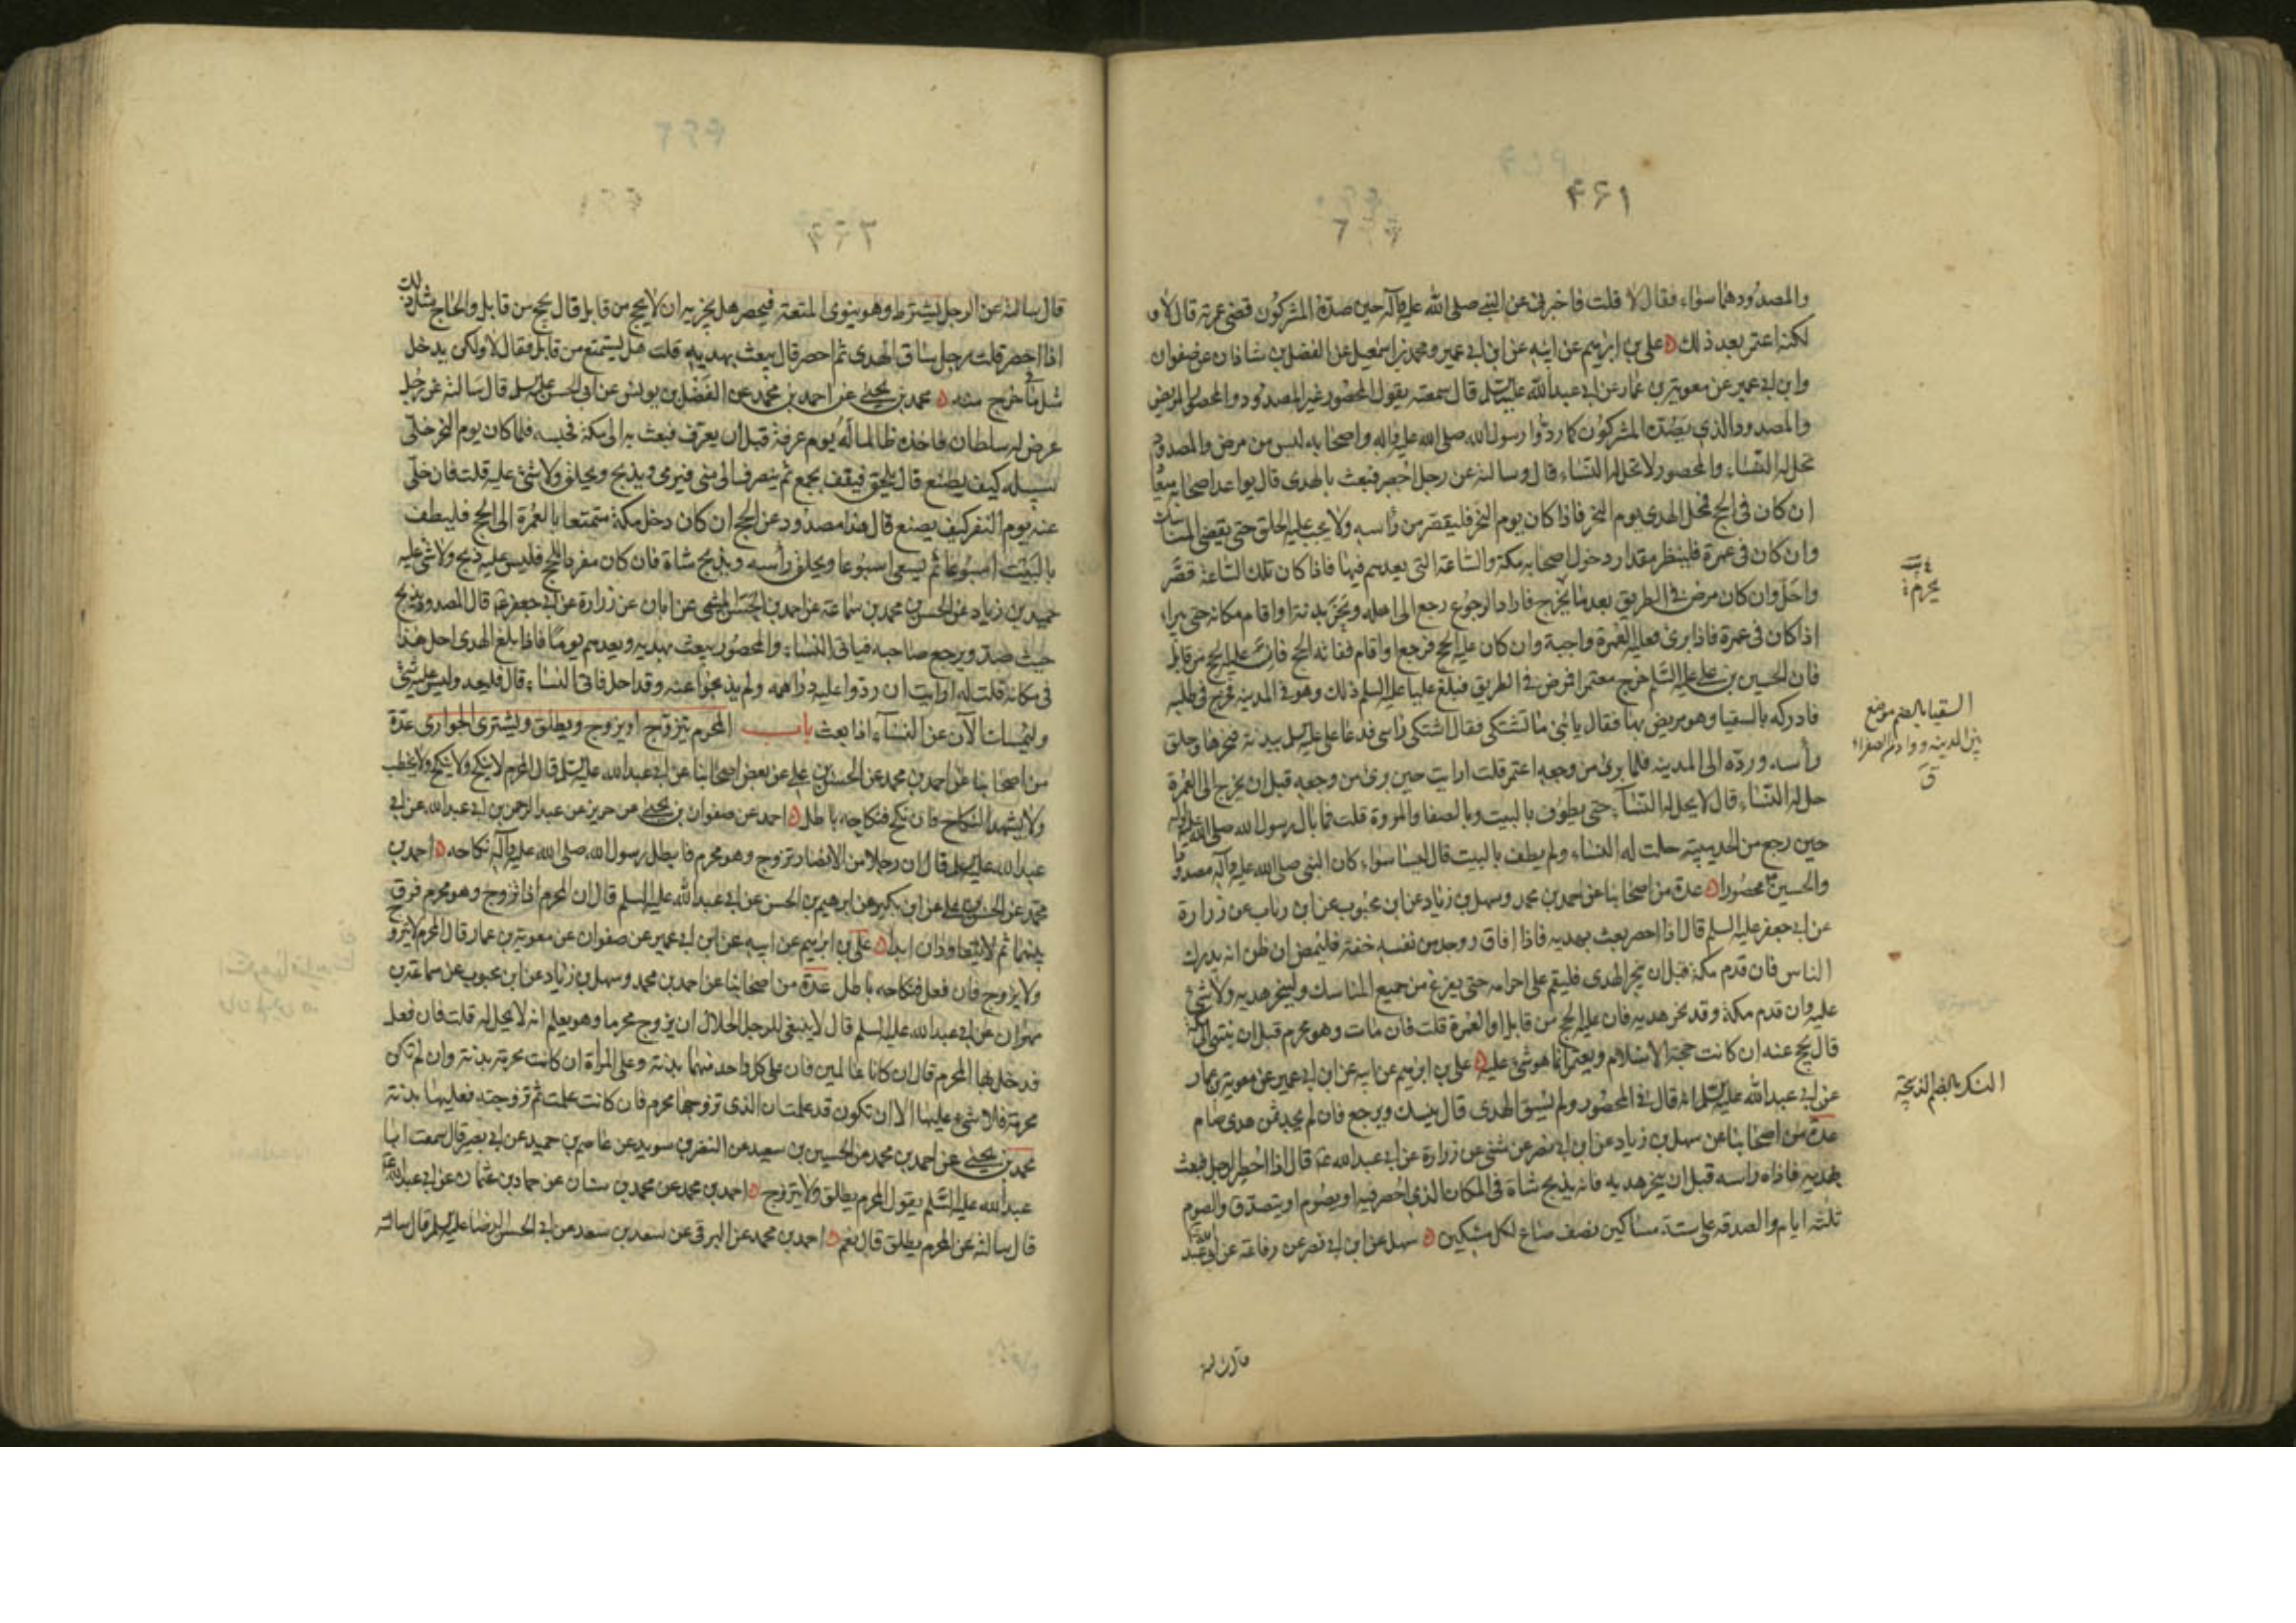 ٤٦١
والمصدود هما سواء فقال لا قلت فاخبرنى عن النبي صلى الله عليه وآله حين صدّه المشركون قضى عمرته قال لا و
لكنه اعتمر بعد ذلك ٥ علي بن ابرهيم عن ابيه عن ابن ابي عمير ومحمد بن اسمعيل عن الفضل بن شاذان عن صفوان
وابن ابي عمير عن معوية بن عمار عن ابي عبد الله عليه السلم قال سمعته يقول المحصور غير المصدود والمحصور المريض
والمصدود الذي يصدّه المشركون كما ردّوا رسول الله صلى الله عليه وآله واصحابه ليس من مرض والمصدود
تحل له النساء والمحصور لا تحل له النساء قال وسالته عن رجل احصر فبعث بالهدى قال يواعد اصحابه ميعادا
ان كان فى الحج فمحل الهدى يوم النحر فاذا كان يوم النحر فليقصر من رأسه ولا يجب عليه الحلق حتى يقضى المناسك
وان كان فى عمرة فلينظر مقدار دخول اصحابه مكة والساعة التى يعدهم فيها فاذا كان تلك الساعة قصّر
واحلّ وان كان مرض فى الطريق بعد ما يخرج فاراد الرجوع رجع الى اهله ونحر بدنة او اقام مكانه حتى يبرأ
اذا كان فى عمرة فاذا برئ فعليه العمرة واجبة وان كان عليه الحج فرجع او اقام ففاته الحج فان عليه الحج من قابل
فان الحسين بن على عليه السلم خرج معتمرا فمرض فى الطريق فبلغ عليا عليه السلم ذلك وهو فى المدينه فخرج فى طلبه
فادركه بالسقيا وهو مريض بها فقال يا بنى ما تشتكى فقال اشتكى راسى فدعا على عليه السلم ببدنة فنحرها وحلق
رأسه وردّه الى المدينه فلما برئ من وجعه اعتمر قلت ارايت حين برئ من وجعه قبل ان يخرج الى العمرة
حل له النساء قال لا يحل له النساء حتى يطوف بالبيت وبالصفا والمروة قلت فما بال رسول الله صلى الله عليه وآله
حين رجع من الحديبيه حلت له النساء ولم يطف بالبيت قال ليسا سواء كان النبي صلى الله عليه وآله مصدودا
والحسين ع محصورا ٥ عدة من اصحابنا عن احمد بن محمد وسهل بن زياد عن ابن محبوب عن ابن رئاب عن زرارة
عن ابي جعفر عليه السلم قال اذا احصر بعث بهديه فاذا افاق ووجد من نفسه خفة فليمض ان ظن انه يدرك
الناس فان قدم مكة قبل ان ينحر الهدى فليقم على احرامه حتى يفرغ من جميع المناسك ولينحر هديه ولا شئ
عليه وان قدم مكة وقد نحر هديه فان عليه الحج من قابل او العمرة قلت فان مات وهو محرم قبل ان ينتهى الى مكة
قال يحج عنه ان كانت حجة الاسلام ويعتمر انما هو شئ عليه ٥ علي بن ابرهيم عن ابيه عن ابن ابي عمير عن معوية بن عمار
عن ابي عبد الله عليه السلم انه قال فى المحصور ولم يسق الهدى قال ينسك ويرجع فان لم يجد ثمن هدى صام
عدة من اصحابنا عن سهل بن زياد عن ابن ابي نصر عن مثنى عن زرارة عن ابي عبد الله ع قال اذا احصر الرجل فبعث
بهديه فاذاه راسه قبل ان ينحر هديه فانه يذبح شاة فى المكان الذى احصر فيه او يصوم او يتصدق والصوم
ثلثة ايام والصدقه على ستة مساكين نصف صاع لكل مسكين ٥ سهل عن ابن ابي نصر عن رفاعة عن ابي عبد الله
السقيا بالضم موضع
بين المدينه ووادى الصفراء
ق
النسك بالضم الذبيحة
٤٦٢
قال سالته عن الرجل يشترط وهو ينوى المتعة فيحصر هل يجزيه ان لا يحج من قابل قال يحج من قابل والحاج مثل ذلك
اذا احصر قلت رجل ساق الهدى ثم احصر قال يبعث بهديه قلت هل يستمتع من قابل فقال لا ولكن يدخل
فى مثل ما خرج منه ٥ محمد بن يحيى عن احمد بن محمد عن الفضل بن يونس عن ابي الحسن عليه السلم قال سالته عن رجل
عرض له سلطان فاخذه ظالما له يوم عرفة قبل ان يعرّف فبعث به الى مكة فحبسه فلما كان يوم النحر خلّى
سبيله كيف يصنع قال يلحق فيقف بجمع ثم ينصرف الى منى فيرمى ويذبح ويحلق ولا شئ عليه قلت فان خلّى
عنه يوم النفر كيف يصنع قال هذا مصدود عن الحج ان كان دخل مكة متمتعا بالعمرة الى الحج فليطف
بالبيت اسبوعا ثم يسعى اسبوعا ويحلق رأسه ويذبح شاة فان كان مفردا للحج فليس عليه ذبح ولا شئ عليه
حميد بن زياد عن الحسن بن محمد بن سماعة عن احمد بن الحسن الميثمى عن ابان عن زرارة عن ابي جعفر ع قال المصدود يذبح
حيث صد ويرجع صاحبه فياتى النساء والمحصور يبعث بهديه ويعدهم يوما فاذا بلغ الهدى احل هذا
فى مكانه قلت له ارايت ان ردّوا عليه دراهمه ولم يذبحوا عنه وقد احل فاتى النساء قال فليعد وليس عليه شئ
وليمسك الآن عن النساء اذا بعث باب المحرم يتزوج او يزوج ويطلق ويشترى الجوارى عدّة
من اصحابنا عن احمد بن محمد عن الحسن بن على عن بعض اصحابنا عن ابي عبد الله عليه السلم قال المحرم لا ينكح ولا ينكح ولا يخطب
ولا يشهد النكاح فان نكح فنكاحه باطل ٥ احمد عن صفوان بن يحيى عن حريز عن عبد الرحمن بن ابي عبد الله عن ابي
عبد الله عليه السلم قال ان رجلا من الانصار تزوج وهو محرم فابطل رسول الله صلى الله عليه وآله نكاحه ٥ احمد بن
محمد عن الحسن بن على عن ابن بكير عن ابرهيم بن الحسن عن ابي عبد الله عليه السلم قال ان المحرم اذا تزوج وهو محرم فرق
بينهما ثم لا يتعاودان ابدا ٥ علي بن ابرهيم عن ابيه عن ابن ابي عمير عن صفوان عن معوية بن عمار قال المحرم لا يتزوج
ولا يزوج فان فعل فنكاحه باطل عدة من اصحابنا عن احمد بن محمد وسهل بن زياد عن ابن محبوب عن سماعة بن
مهران عن ابي عبد الله عليه السلم قال لا ينبغى للرجل الحلال ان يزوج محرما وهو يعلم انه لا يحل له قلت فان فعل
فدخل بها المحرم قال ان كانا عالمين فان على كل واحد منهما بدنة وعلى المرأة ان كانت محرمة بدنة وان لم تكن
محرمة فلا شئ عليها الا ان تكون قد علمت ان الذى تزوجها محرم فان كانت علمت ثم تزوجته فعليها بدنة
محمد بن يحيى عن احمد بن محمد عن الحسين بن سعيد عن النضر بن سويد عن عاصم بن حميد عن ابي بصير قال سمعت ابا
عبد الله عليه السلم يقول المحرم يطلق ولا يتزوج ٥ احمد بن محمد عن محمد بن سنان عن حماد بن عثمان عن ابي عبد الله ع
قال سالته عن المحرم يطلق قال نعم ٥ احمد بن محمد عن البرقى عن سعد بن سعد عن ابي الحسن الرضا عليه السلم قال سالته